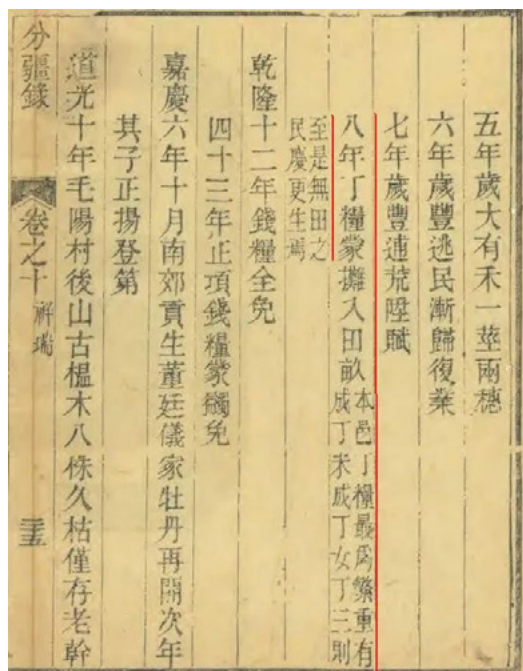 五年歲大有禾一莖兩穗
六年歲豐逃民漸歸復業
七年歲豐連荒陞賦
八年丁糧蒙攤入田畝本邑丁糧最為繁重有成丁未成丁女丁三則
至是無田之民慶更生焉
乾隆十二年錢糧全免
四十三年正項錢糧蒙蠲免
嘉慶六年十月南郊貢生董廷儀家牡丹再開次年
其子正揚登第
道光十年毛陽村後山古榅木八株久枯僅存老幹
分疆錄
卷之十
祥瑞
三五